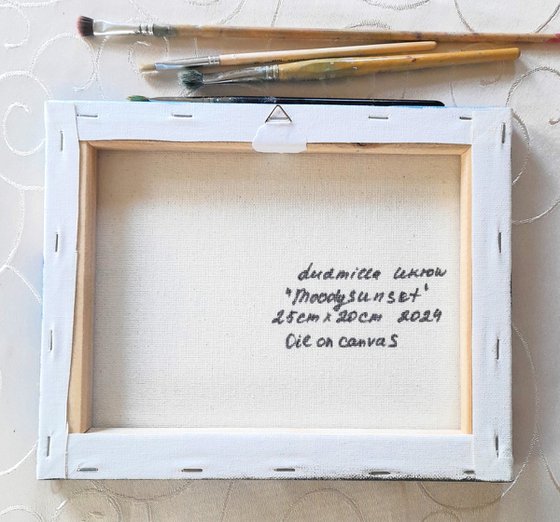 Ludmilla Ukrow
"Moody sunset"
25cm x 20cm 2024
Oil on canvas